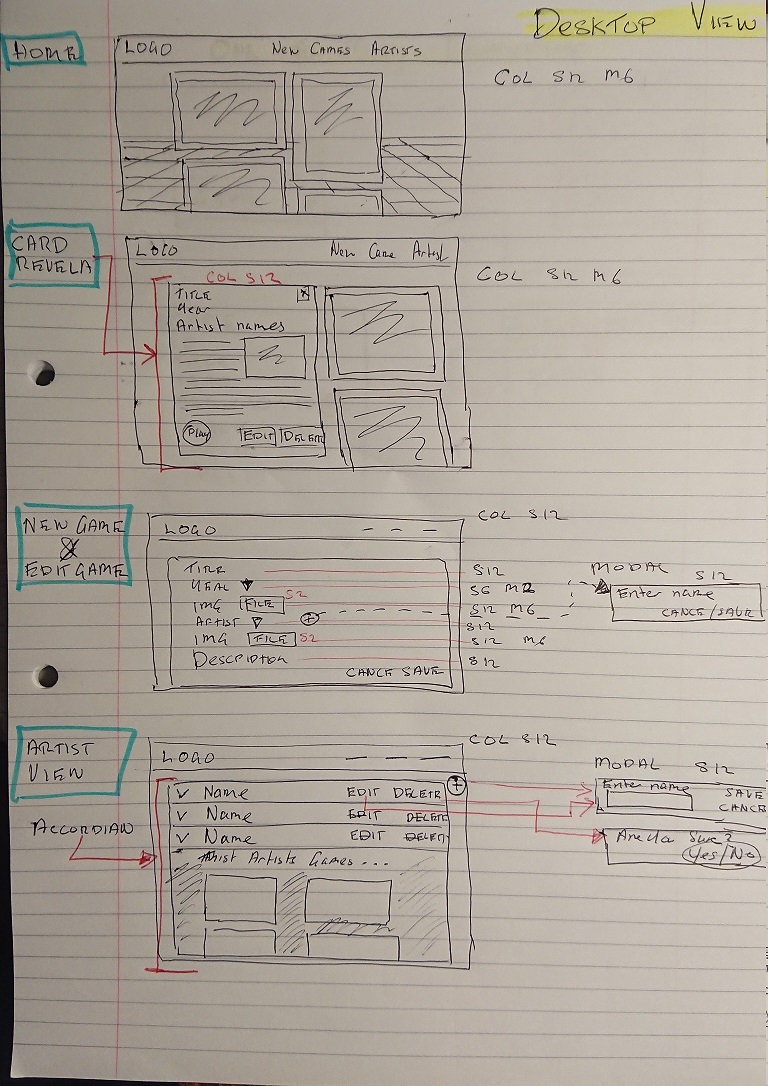 DESKTOP VIEW
HOME
LOGO NEW GAMES ARTISTS
COL S12 M6
CARD
REVELA
LOGO New Game Artist
COL S12 M6
COL S12
TITLE X
Year
Artist names
Play EDIT DELETE
NEW GAME
&
EDIT GAME
LOGO
COL S12
TITLE S12
YEAR S6 M2
IMG FILE S2 S12 M6
ARTIST + S12
IMG FILE S2 S12 M6
Description S12
CANCE SAVE
MODAL S12
Enter name
CANCE/SAVE
ARTIST
VIEW
LOGO
COL S12
V Name EDIT DELETE +
V Name EDIT DELETE
V Name EDIT DELET
Artists Games...
ACCORDIAN
MODAL S12
Enter name SAVE
CANCE
Are Ya Sure?
Yes/No